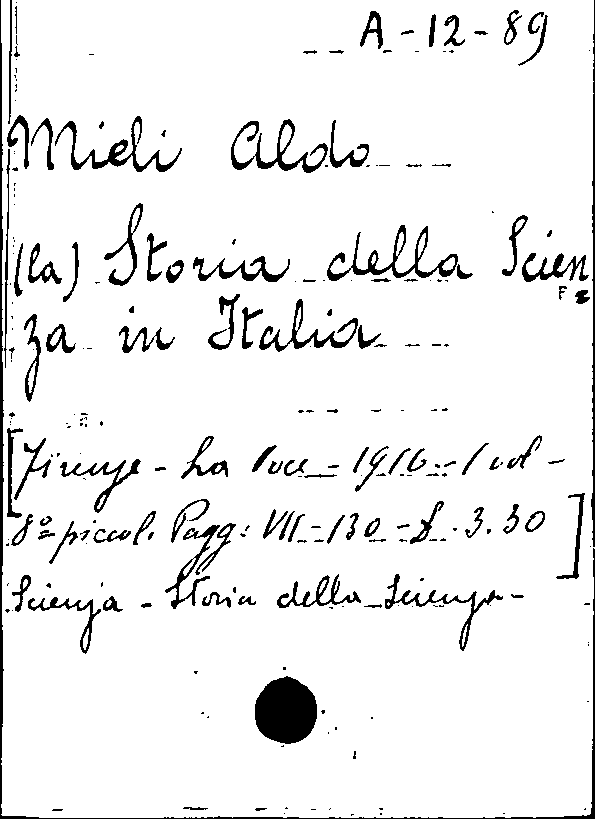 A-12-89
Mieli Aldo
(la) Storia della Scien
za in Italia
[Firenze - La Voce - 1916 - 1 vol -
8º piccol. Pagg: VII - 130 - £ . 3.30]
Scienza - Storia della Scienza -